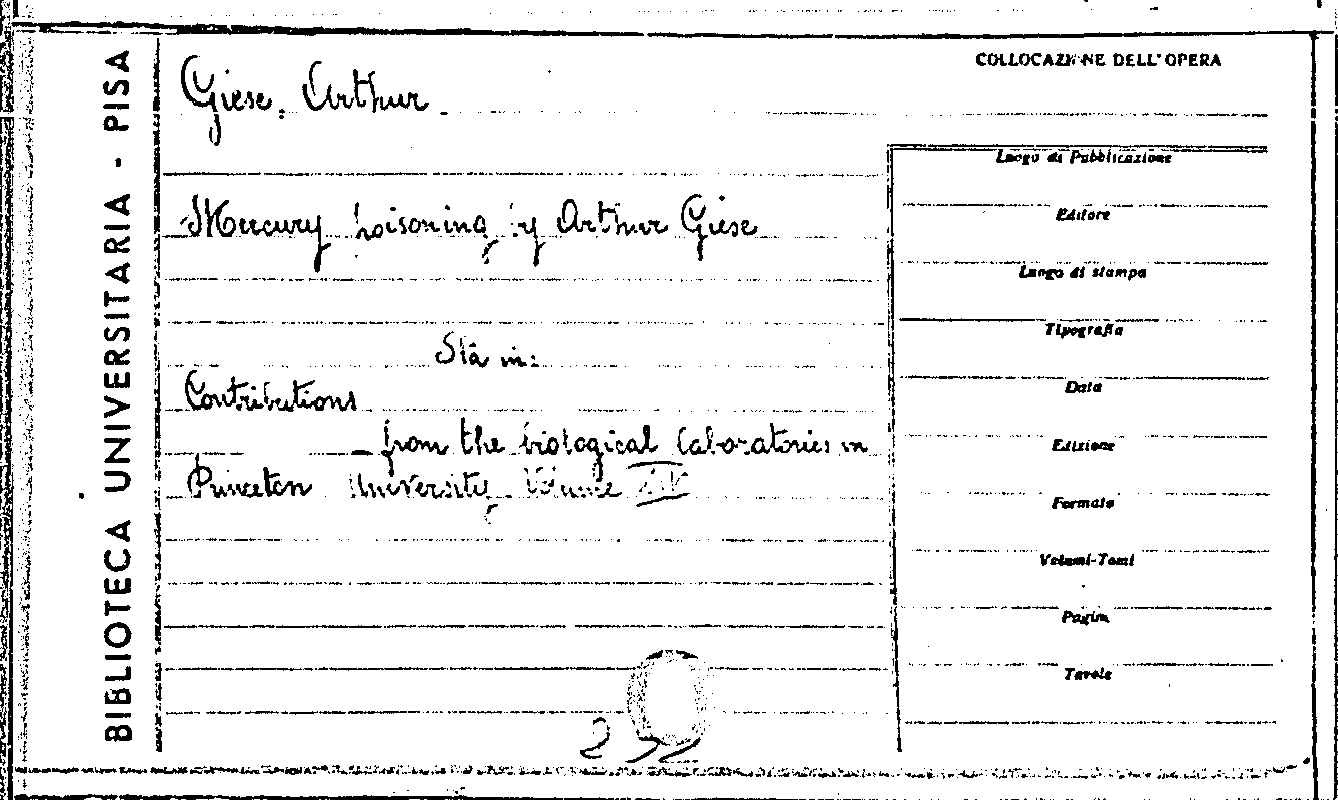 BIBLIOTECA UNIVERSITARIA - PISA
COLLOCAZIONE DELL'OPERA
Giese, Arthur
Mercury poisoning by Arthur Giese
Sta in:
Contributions
from the biological laboratories in
Princeton University. Volume
Luogo di Pubblicazione
Editore
Luogo di stampa
Tipografia
Data
Edizione
Formato
Volumi-Tomi
Pagine
Tavole